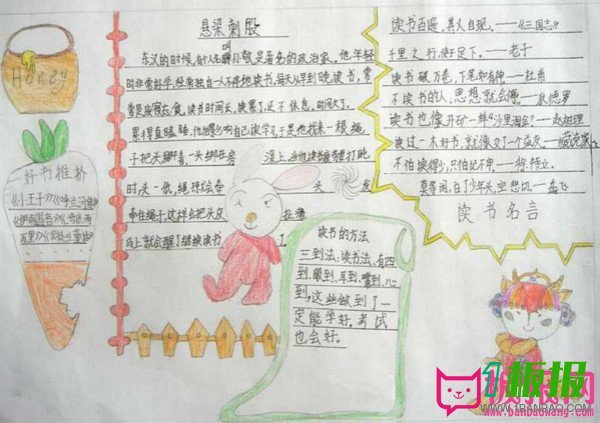 Honey
好书推荐
《小王子》《呼兰河传》
悬梁刺股
东汉的时候,有个人名叫孙敬是著名的政治家。他年轻
时非常好学,经常独自一人不停地读书,每天从早到晚读书,常
常是废寝忘食,读书时间长,疲累了还不休息,时间久了,
累得直瞌睡,他怕影响自己读学习于是他找来一根绳
子把头绑着,一头绑在房 梁上,当他读书疲劳打盹
时头一低,绳子就会牵 头
牵住绳子,这样会把头皮 拉痛
马上就会醒了继续读书 了。
读书百遍,其义自现。——《三国志》
千里之行,始于足下。——老子
读书破万卷,下笔如有神——杜甫
不读书的人,思想就会停。——狄德罗
读书也像开矿一样“沙里淘金”——赵树理
读过一本好书,就像交了一个益友——臧克家
不怕读得少,只怕记不牢。——徐特立。
莫等闲,白了少年头,空悲切——岳飞
读书名言
读书的方法
三到法:读书法,有四
到,眼到、耳到、嘴到、心
到,这些做到了一
定能学好。考试
也会好。
板报
WWW.1BANBAO.COM
www.banbaowang.com